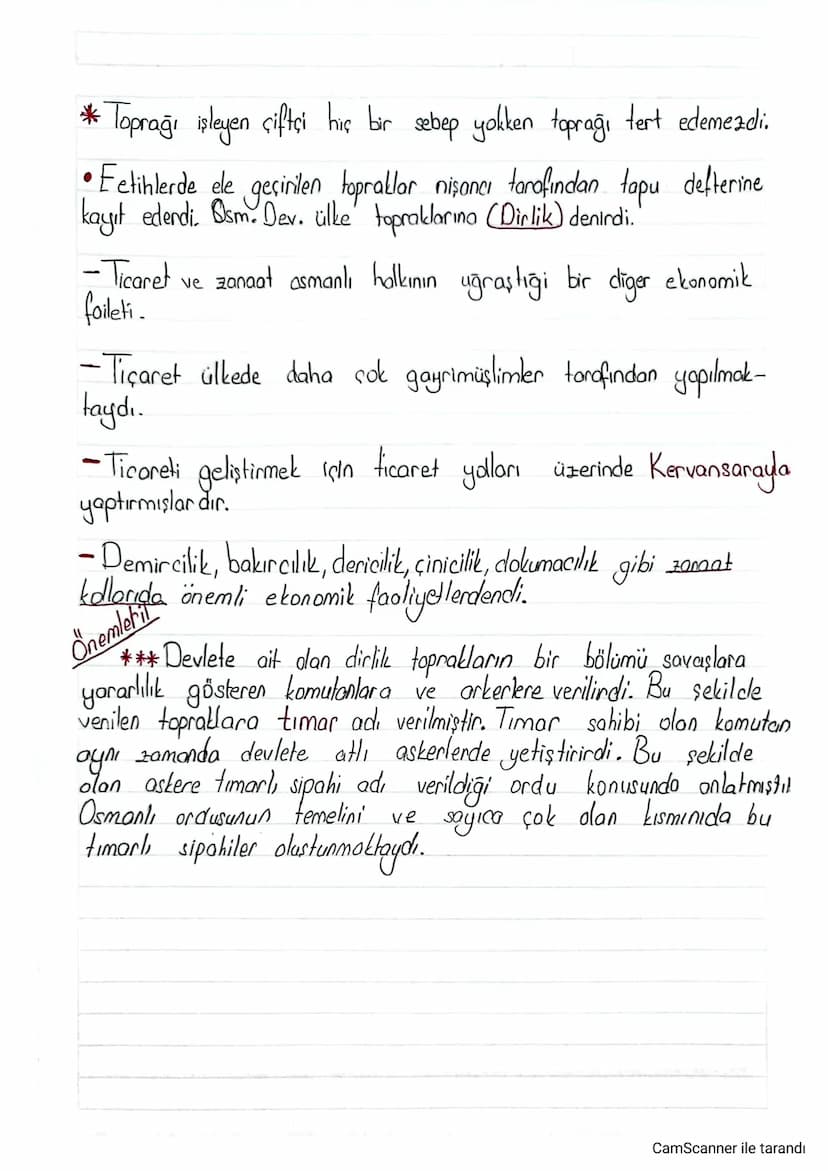 * Toprağı işleyen çiftçi hiç bir sebep yokken toprağı tert edemezdi.
• Fetihlerde ele geçirilen topraklar nişancı tarafından tapu defterine
kayıt ederdi. Osm. Dev. ülke topraklarına (Dirlik) denirdi.
- Ticaret ve zanaat osmanlı halkının uğraştığı bir diğer ekonomik
faileti.
- Ticaret ülkede daha çok gayrimüşlimler tarafından yapılmak-
taydı.
- Ticareti geliştirmek için ticaret yolları üzerinde Kervansarayla
yaptırmışlardır.
- Demircilik, bakırcılık, dericilik, çinicilik, dokumacılık gibi zanaat
kollarıda önemli ekonomik faaliyetlerdendi.
Önemleti!
*** Devlete ait olan dirlik toprakların bir bölümü savaşlara
yararlılık gösteren komutanlara ve arkerlere verilirdi. Bu şekilde
verilen topraklara tımar adı verilmiştir. Tımar sahibi olan komutan
aynı zamanda devlete atlı askerlerde yetiştirirdi. Bu şekilde
olan askere tımarlı sipahi adı verildiği ordu konusunda anlatmıştı!
Osmanlı ordusunun temelini ve sayıca çok olan kısmınıda bu
tımarlı sipahiler oluştunmaktaydı.
CamScanner ile tarandı